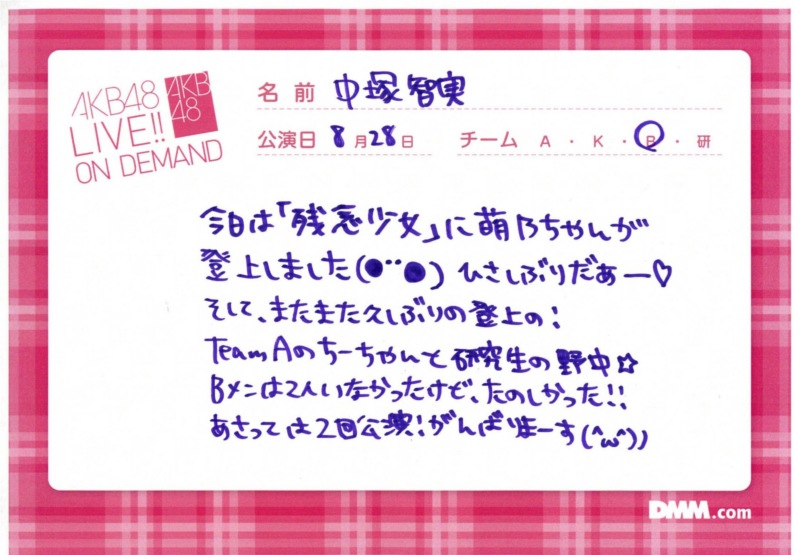 AKB48
LIVE!!
ON DEMAND
AKB
48
名前 中塚智実
公演日 8月28日 チーム A・K・B・研
今日は「残念少女」に萌乃ちゃんが
登上しました(●¨●) ひさしぶりだあー♡
そして、またまた久しぶりの登上の!
Team Aのちーちゃんと研究生の野中☆
Bメンは2人いなかったけど、たのしかった!!
あさっては2回公演!がんばりまーす(^ω^))
DMM.com